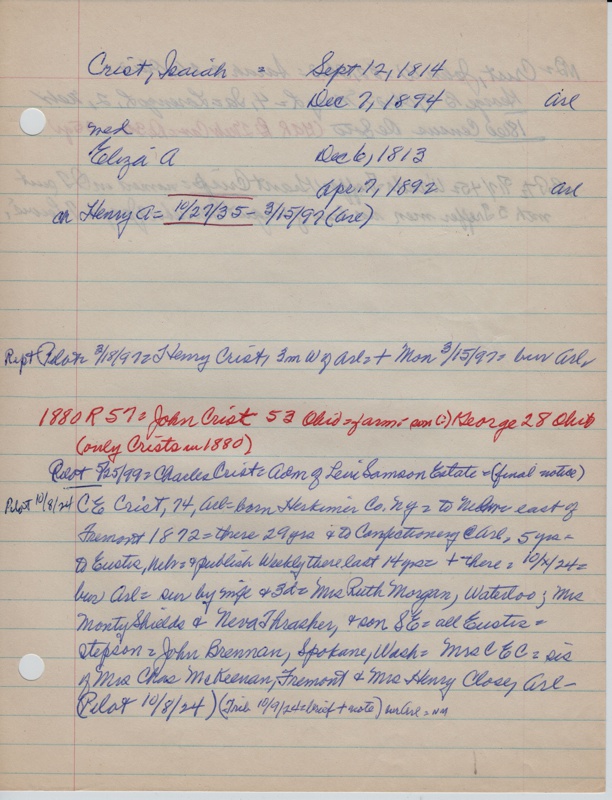 Crist, Isaiah = Sept 12, 1814
Dec 7, 1894 Arl
med
Eliza A Dec 6, 1813
Apr. 7, 1892 Arl
Ch Henry A = 10/27/35 - 3/15/97 (Arl)
Rept Pilot = 3/18/97 = Henry Crist, 3 m W of Arl = + Mon 3/15/97 = bur Arl
1880 R 57 = John Crist 53 Ohio = farm = son (=) George 28 Ohio
(only Crists in 1880)
Pilot 5/25/99 = Charles Crist = Adm of Levi Samson Estate = (final notice)
Pilot 10/8/24 C E Crist, 74, Arl = born Herkimer Co. NY = to Nebr = east of
Fremont 1872 = there 29 yrs & to Confectionery @ Arl, 5 yrs =
to Eustis, Nebr = & publish Weekly there last 14 yrs = + there = 10/4/24 =
bur Arl = sur by wife & 3d = Mrs Ruth Morgan, Waterloo; Mrs
Monty Shields & Neva Thrasher, & son SE = all Eustis =
stepson = John Brennan, Spokane, Wash = Mrs C E C = sis
of Mrs Chas McKeenan, Fremont & Mrs Henry Close, Arl -
Pilot 10/8/24) (Trib 10/9/24 = brief + note) bur Arl = nm